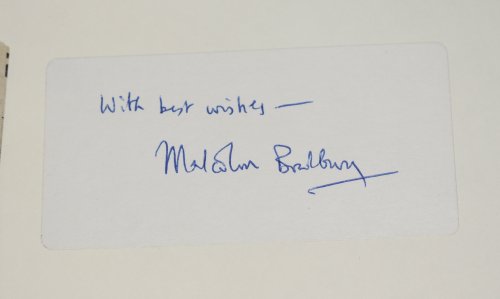 With best wishes —
Malcolm Bradbury